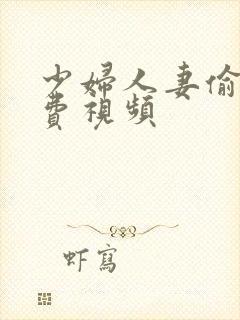 少婦人妻偷
費視頻
虾寫